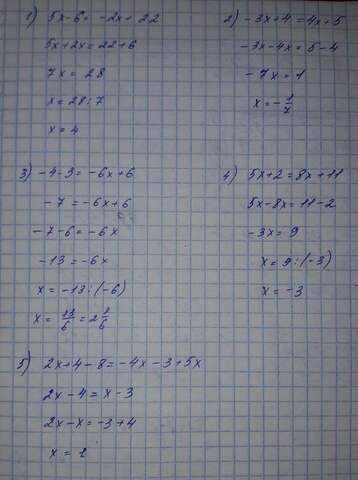 1) 5x-6=-2x+22
5x+2x=22+6
7x = 28
x=28:7
x=4
2) -3x+4=4x+5
-3x-4x=5-4
-7x=1
x=-1/7
3) -4-3=-6x+6
-7=-6x+6
-7-6=-6x
-13=-6x
x=-13:(-6)
x = 13/6 = 2 1/6
4) 5x+2=8x+11
5x-8x=11-2
-3x=9
x=9:(-3)
x=-3
5) 2x+4-8=-4x-3+5x
2x-4=x-3
2x-x=-3+4
x=1